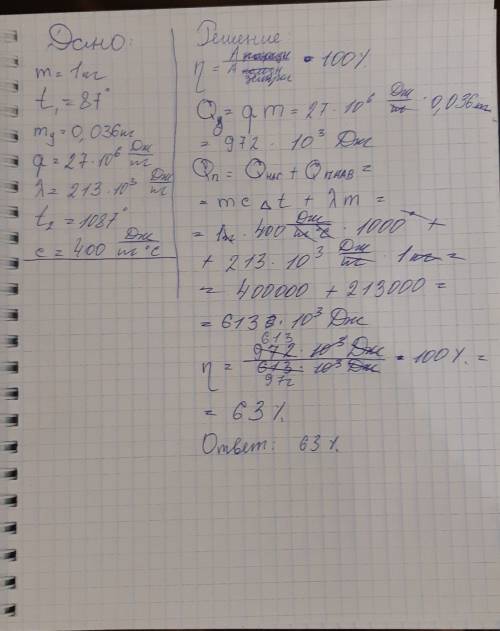 Дано:
m = 1кг
t₁ = 87°
m₂ = 0,036кг
q = 27·10⁶ Дж/кг
λ = 213·10³ Дж/кг
t₂ = 1087°
c = 400 Дж/кг°С
Решение:
η = A / A · 100%
Q = qm = 27·10⁶ Дж/кг · 0,036кг
= 972 · 10³ Дж
Qп = Qнаг + Qплав =
= mcΔt + λm =
= 1кг · 400 Дж/кг°С · 1000° +
+ 213·10³ Дж/кг · 1кг =
= 400000 + 213000 =
= 613·10³ Дж
η = 613·10³ Дж / 972·10³ Дж · 100% =
= 63%
Ответ: 63%